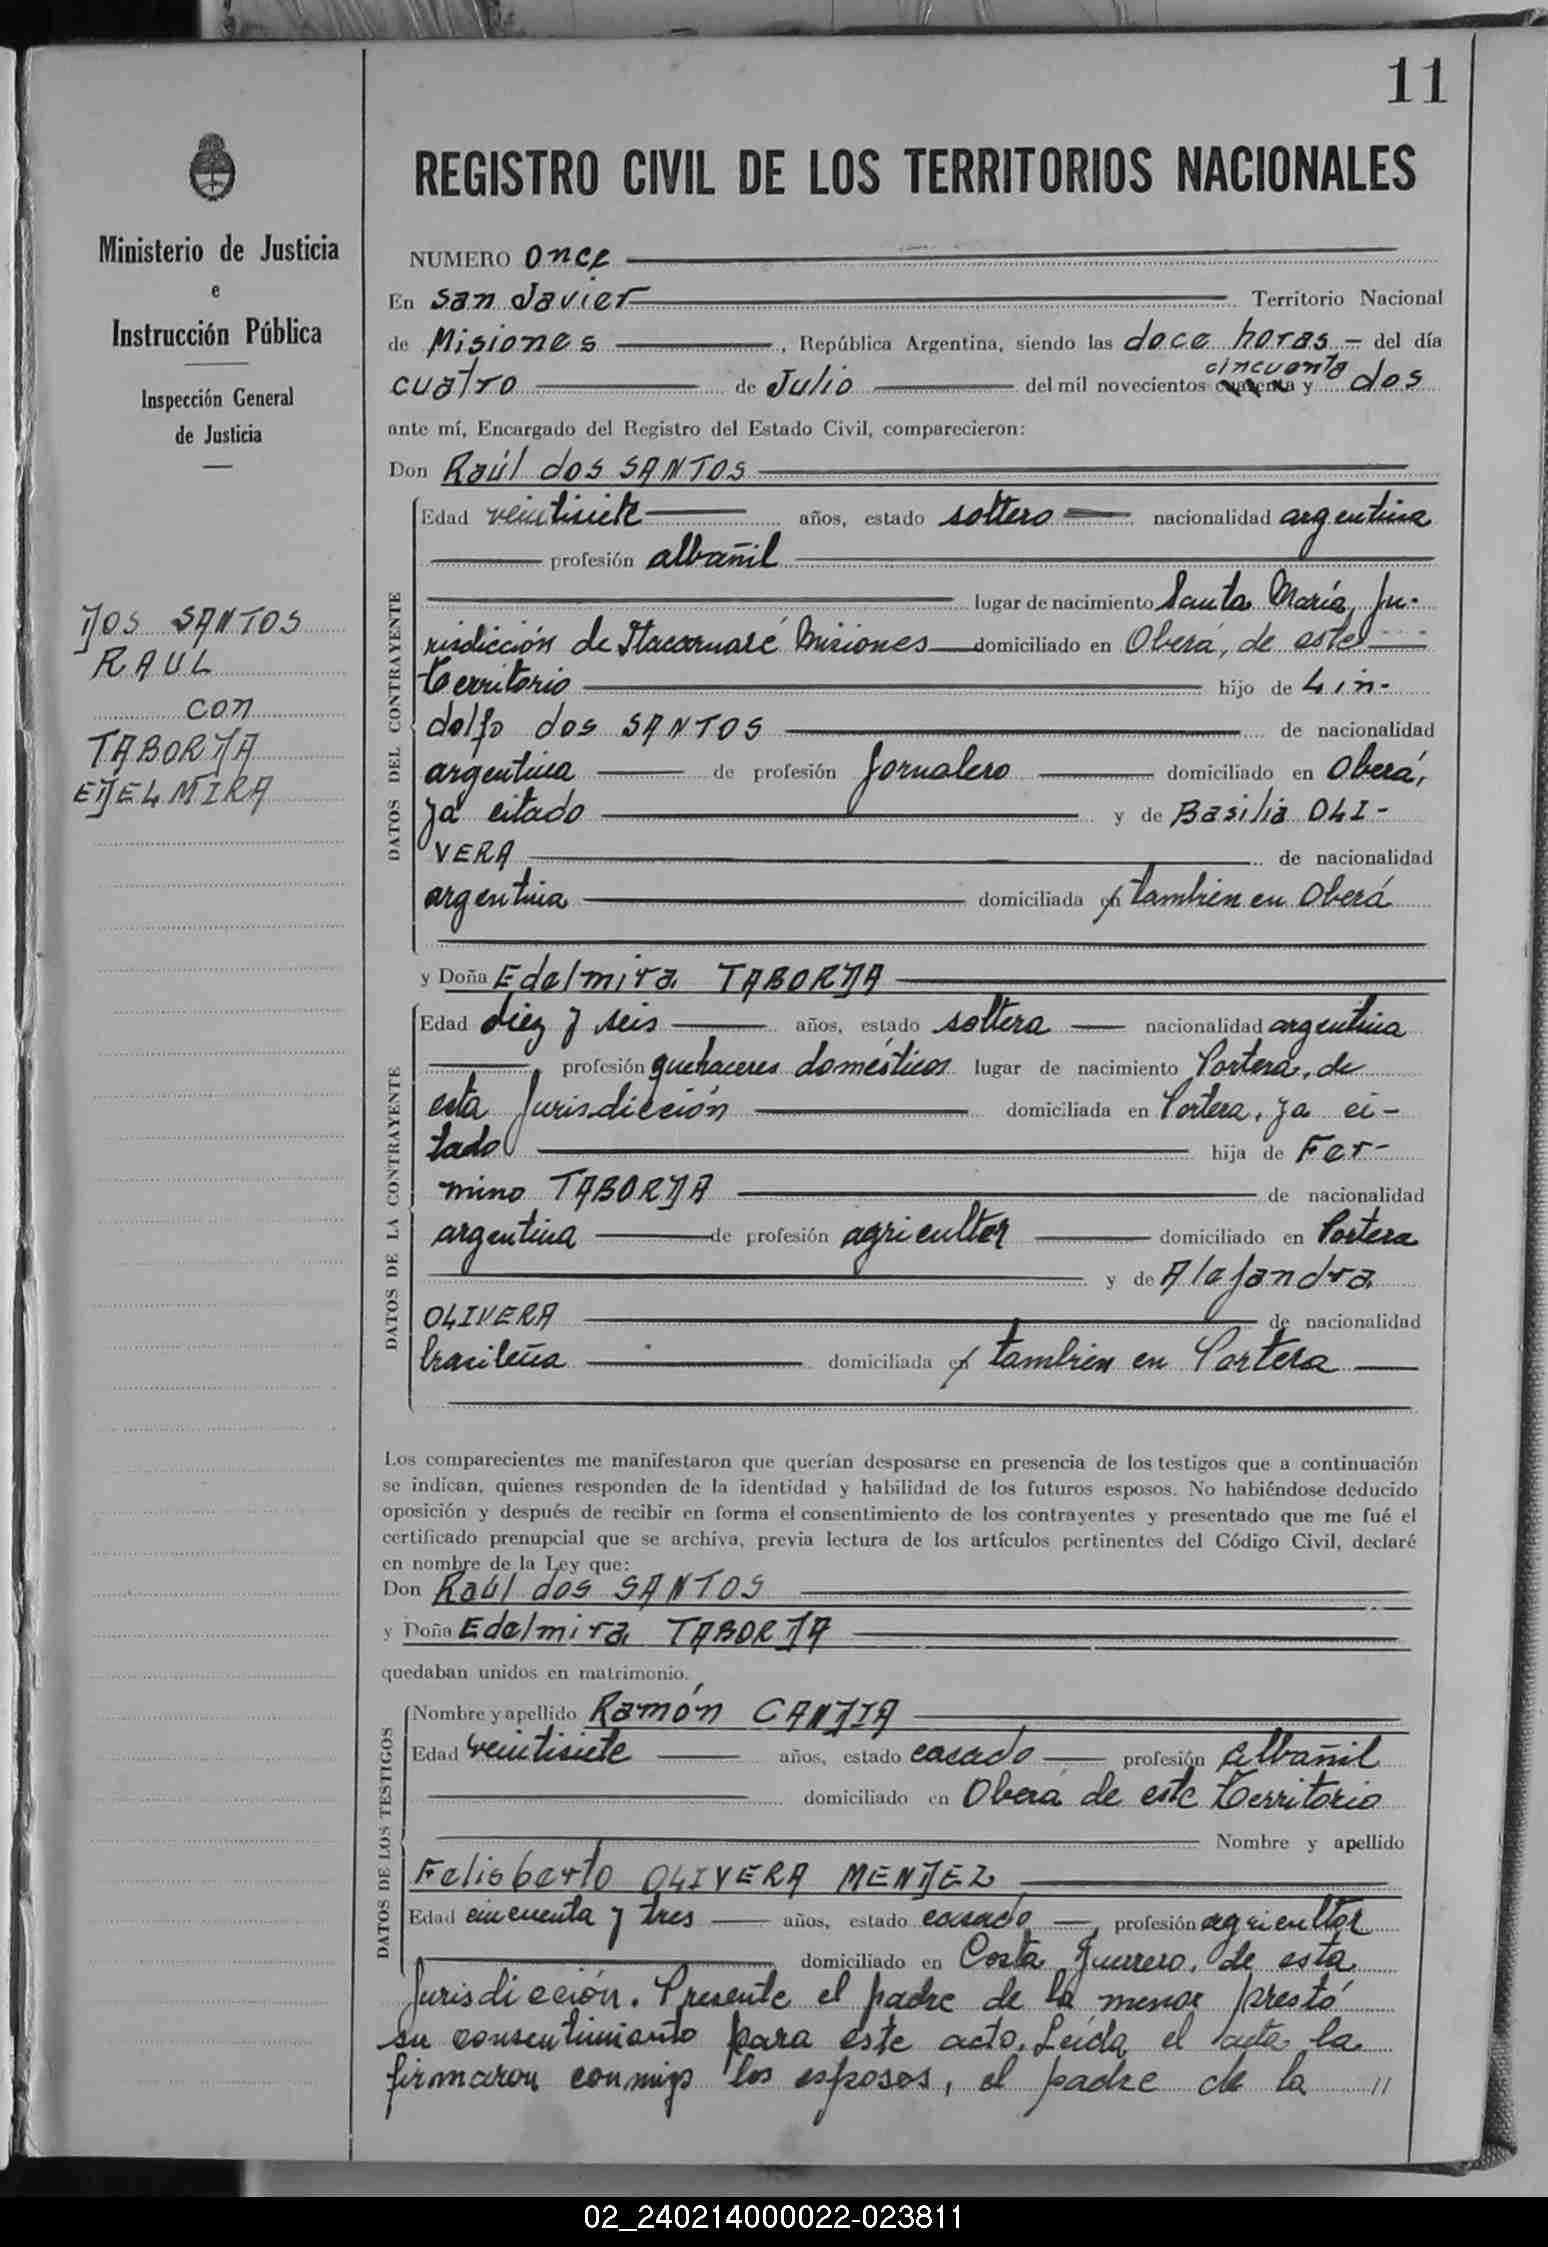 11
REGISTRO CIVIL DE LOS TERRITORIOS NACIONALES
Ministerio de Justicia
e
Instrucción Pública
Inspección General
de Justicia
DOS SANTOS
RAUL
con
TABORDA
EDELMIRA
NUMERO once
En San Javier Territorio Nacional
de Misiones, República Argentina, siendo las doce horas - del día
cincuenta
cuatro de Julio del mil novecientos cuarenta y dos
ante mí, Encargado del Registro del Estado Civil, comparecieron:
Don Raúl dos SANTOS
DATOS DEL CONTRAYENTE
Edad veintisiete años, estado soltero nacionalidad argentina
profesión albañil
lugar de nacimiento Santa María, Ju-
risdicción de Itacaruaré Misiones domiciliado en Oberá, de este
territorio hijo de Lin-
dolfo dos SANTOS de nacionalidad
argentina de profesión Jornalero domiciliado en Oberá,
ya citado y de Basilia OLI-
VERA de nacionalidad
argentina domiciliada en también en Oberá
y Doña Edelmira TABORDA
DATOS DE LA CONTRAYENTE
Edad diez y seis años, estado soltera nacionalidad argentina
profesión quehaceres domésticos lugar de nacimiento Portera, de
esta Jurisdicción domiciliada en Portera, ya ci-
tado hija de Fer-
mino TABORDA de nacionalidad
argentina de profesión agricultor domiciliado en Portera
y de Alejandra
OLIVERA de nacionalidad
brasileña domiciliada en también en Portera
Los comparecientes me manifestaron que querían desposarse en presencia de los testigos que a continuación
se indican, quienes responden de la identidad y habilidad de los futuros esposos. No habiéndose deducido
oposición y después de recibir en forma el consentimiento de los contrayentes y presentado que me fué el
certificado prenupcial que se archiva, previa lectura de los artículos pertinentes del Código Civil, declaré
en nombre de la Ley que:
Don Raúl dos SANTOS
y Doña Edelmira TABORDA
quedaban unidos en matrimonio.
DATOS DE LOS TESTIGOS
Nombre y apellido Ramón CANDIA
Edad veintisiete años, estado casado profesión albañil
domiciliado en Oberá de este territorio
Nombre y apellido
Felisberto OLIVERA MENDEZ
Edad cincuenta y tres años, estado casado, profesión agricultor
domiciliado en Costa Guerrero, de esta
Jurisdicción. Presente el padre de la menor prestó
su consentimiento para este acto. Leída el acta la
firmaron conmigo los esposos, el padre de la //
02_240214000022-023811